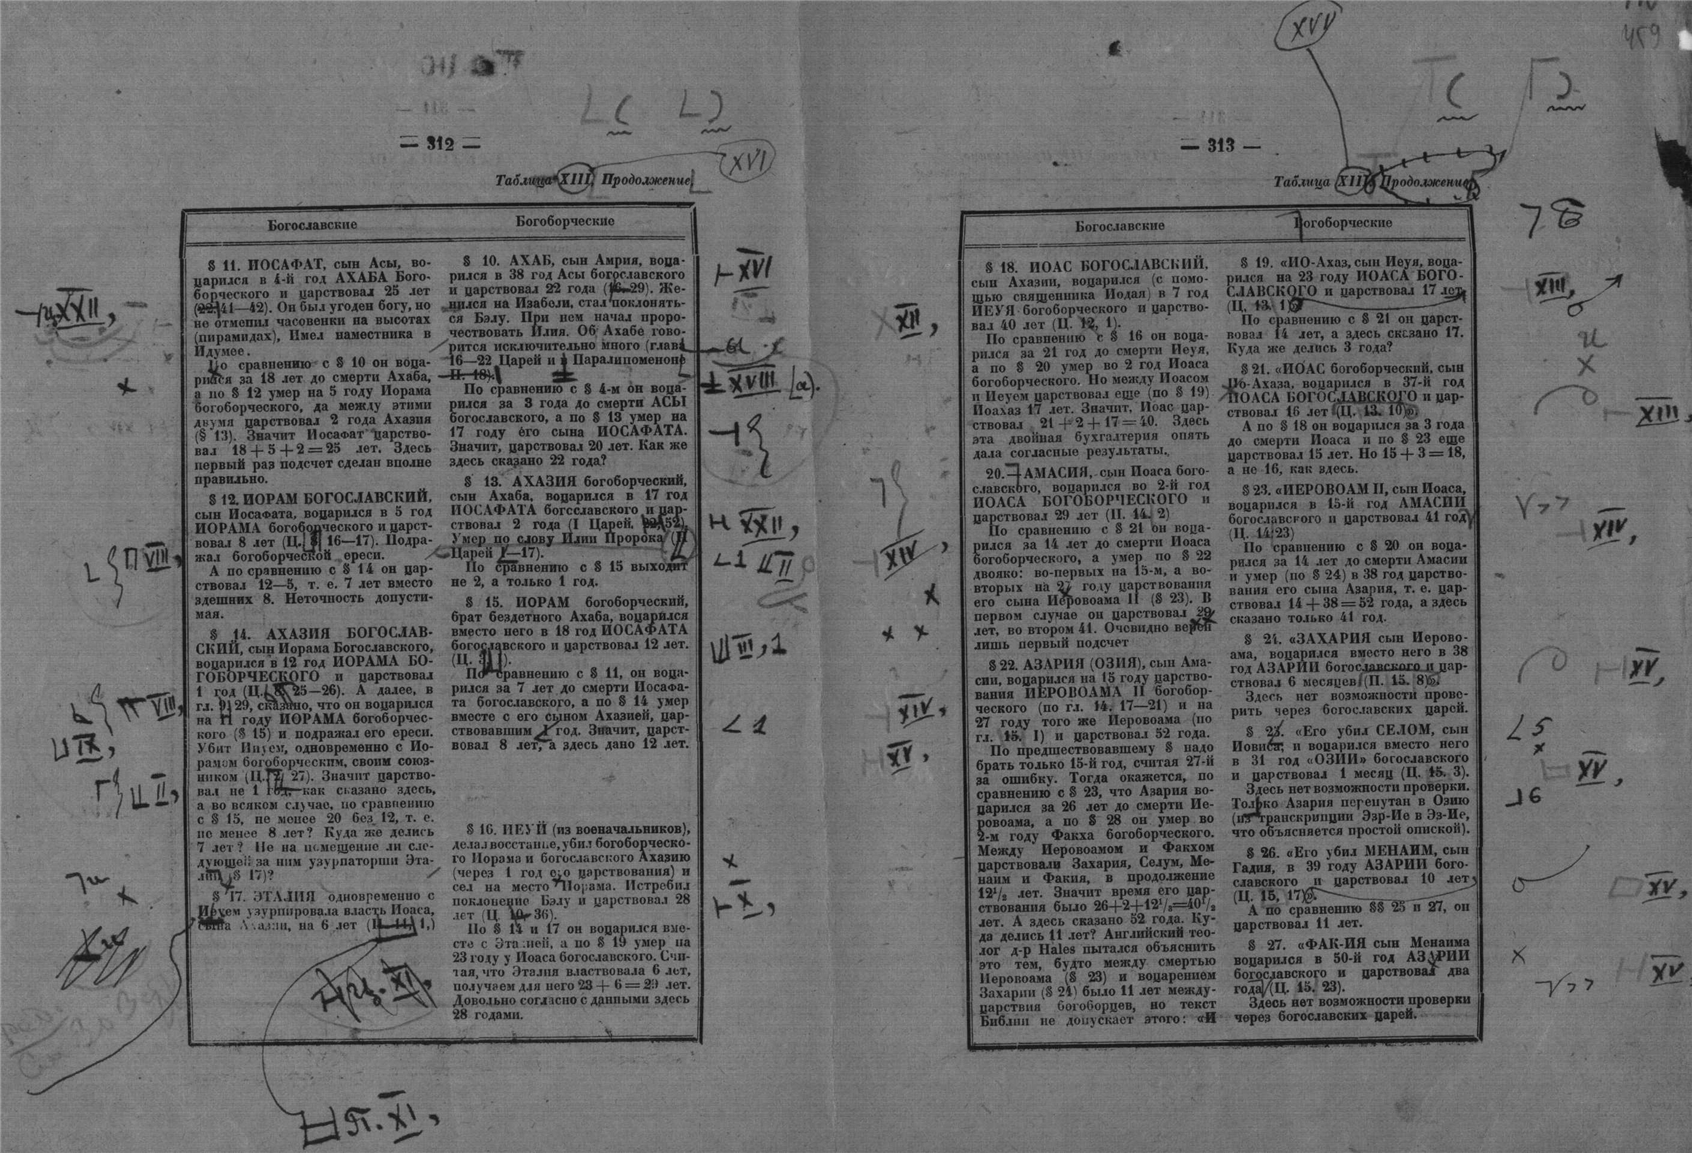 — 312 —
XVI
Таблица XIII. Продолжение
Богославские
§ 11. ИОСАФАТ, сын Асы, во-
царился в 4-й год АХАБА Бого-
борческого и царствовал 25 лет
(22, 41—42). Он был угоден богу, но
не отменил часовенки на высотах
(пирамидах), Имел наместника в
Идумее.
По сравнению с § 10 он воца-
рился за 18 лет до смерти Ахаба,
а по § 12 умер на 5 году Иорама
богоборческого, да между этими
двумя царствовал 2 года Ахазия
(§ 13). Значит Иосафат царство-
вал 18 + 5 + 2 = 25 лет. Здесь
первый раз подсчет сделан вполне
правильно.
§ 12. ИОРАМ БОГОСЛАВСКИЙ,
сын Иосафата, воцарился в 5 год
ИОРАМА богоборческого и царст-
вовал 8 лет (Ц. 16—17). Подра-
жал богоборческой ереси.
А по сравнению с § 14 он цар-
ствовал 12—5, т. е. 7 лет вместо
здешних 8. Неточность допусти-
мая.
§ 14. АХАЗИЯ БОГОСЛАВ-
СКИЙ, сын Иорама Богославского,
воцарился в 12 год ИОРАМА БО-
ГОБОРЧЕСКОГО и царствовал
1 год (Ц. 8, 25—26). А далее, в
гл. 9, 29, сказано, что он воцарился
на 11 году ИОРАМА богоборчес-
кого (§ 15) и подражал его ереси.
Убит Ииуем, одновременно с Ио-
рамом богоборческим, своим союз-
ником (Ц. 27). Значит царство-
вал не 1 год, как сказано здесь,
а во всяком случае, по сравнению
с § 15, не менее 20 без 12, т. е.
не менее 8 лет? Куда же делись
7 лет? Не на помещение ли сле-
дующей за ним узурпаторши Эта-
лии (§ 17)?
§ 17. ЭТАЛИЯ одновременно с
Иеуем узурпировала власть Иоаса,
сына Ахазии, на 6 лет (Ц. 11, 1,)
Богоборческие
§ 10. АХАБ, сын Амрия, воца-
рился в 38 год Асы богославского
и царствовал 22 года (16—29). Же-
нился на Изабели, стал поклонять-
ся Бэлу. При нем начал проро-
чествовать Илия. Об Ахабе гово-
рится исключительно много (главы
16—22 Царей и Паралипоменон
II. 18).
По сравнению с § 4-м он воца-
рился за 3 года до смерти АСЫ
богославского, а по § 13 умер на
17 году его сына ИОСАФАТА.
Значит, царствовал 20 лет. Как же
здесь сказано 22 года?
§ 13. АХАЗИЯ богоборческий,
сын Ахаба, воцарился в 17 год
ИОСАФАТА богославского и цар-
ствовал 2 года (I Царей, 22, 52).
Умер по слову Илии Пророка (II
Царей 1—17).
По сравнению с § 15 выходит
не 2, а только 1 год.
§ 15. ИОРАМ богоборческий,
брат бездетного Ахаба, воцарился
вместо него в 18 год ИОСАФАТА
богославского и царствовал 12 лет.
(Ц. 3, 1).
По сравнению с § 11, он воца-
рился за 7 лет до смерти Иосафа-
та богославского, а по § 14 умер
вместе с его сыном Ахазией, цар-
ствовавшим 1 год. Значит, царст-
вовал 8 лет, а здесь дано 12 лет.
§ 16. ИЕУЙ (из военачальников),
делал восстание, убил богоборческо-
го Иорама и богославского Ахазию
(через 1 год его царствования) и
сел на место Иорама. Истребил
поклонение Бэлу и царствовал 28
лет (Ц. 10, 36).
По § 14 и 17 он воцарился вме-
сте с Эталией, а по § 19 умер на
23 году у Иоаса богославского. Счи-
тая, что Эталия властвовала 6 лет,
получаем для него 23 + 6 = 29 лет.
Довольно согласно с данными здесь
28 годами.
XXII,
VIII,
VIII,
IX,
II,
XVI
XVIII (а).
XXII,
II
III, 1
X,
XI,
XI,
459
XVI
— 313 —
Таблица XIII. Продолжение
Богославские
§ 18. ИОАС БОГОСЛАВСКИЙ,
сын Ахазии, воцарился (с помо-
щью священника Иодая) в 7 год
ИЕУЯ богоборческого и царство-
вал 40 лет (Ц. 12, 1).
По сравнению с § 16 он воца-
рился за 21 год до смерти Иеуя,
а по § 20 умер во 2 год Иоаса
богоборческого. Но между Иоасом
и Иеуем царствовал еще (по § 19)
Иоахаз 17 лет. Значит, Иоас цар-
ствовал 21 + 2 + 17 = 40. Здесь
эта двойная бухгалтерия опять
дала согласные результаты.
20. АМАСИЯ, сын Иоаса бого-
славского, воцарился во 2-й год
ИОАСА БОГОБОРЧЕСКОГО и
царствовал 29 лет (Ц. 14. 2)
По сравнению с § 21 он воца-
рился за 14 лет до смерти Иоаса
богоборческого, а умер по § 22
двояко: во-первых на 15-м, а во-
вторых на 27 году царствования
его сына Иеровоама II (§ 23). В
первом случае он царствовал 29
лет, во втором 41. Очевидно верен
лишь первый подсчет
§ 22. АЗАРИЯ (ОЗИЯ), сын Ама-
сии, воцарился на 15 году царство-
вания ИЕРОВОАМА II богобор-
ческого (по гл. 14. 17—21) и на
27 году того же Иеровоама (по
гл. 15. 1) и царствовал 52 года.
По предшествовавшему § надо
брать только 15-й год, считая 27-й
за ошибку. Тогда окажется, по
сравнению с § 23, что Азария во-
царился за 26 лет до смерти Ие-
ровоама, а по § 28 он умер во
2-м году Факха богоборческого.
Между Иеровоамом и Факхом
царствовали Захария, Селум, Ме-
наим и Факия, в продолжение
12½ лет. Значит время его цар-
ствования было 26+2+12½=40½
лет. А здесь сказано 52 года. Ку-
да делись 11 лет? Английский тео-
лог д-р Hales пытался объяснить
это тем, будто между смертью
Иеровоама (§ 23) и воцарением
Захарии (§ 24) было 11 лет между-
царствия богоборцев, но текст
Библии не допускает этого: «И
Богоборческие
§ 19. «ИО-Ахаз, сын Иеуя, воца-
рился на 23 году ИОАСА БОГО-
СЛАВСКОГО и царствовал 17 лет
(Ц. 13. 1)
По сравнению с § 21 он царст-
вовал 14 лет, а здесь сказано 17.
Куда же делись 3 года?
§ 21. «ИОАС богоборческий, сын
Ио-Ахаза, воцарился в 37-й год
ИОАСА БОГОСЛАВСКОГО и цар-
ствовал 16 лет (Ц. 13. 10).
А по § 18 он воцарился за 3 года
до смерти Иоаса и по § 23 еще
царствовал 15 лет. Но 15 + 3 = 18,
а не 16, как здесь.
§ 23. «ИЕРОВОАМ II, сын Иоаса,
воцарился в 15-й год АМАСИИ
богославского и царствовал 41 год
(Ц. 14. 23)
По сравнению с § 20 он воца-
рился за 14 лет до смерти Амасии
и умер (по § 24) в 38 год царство-
вания его сына Азария, т. е. цар-
ствовал 14 + 38 = 52 года, а здесь
сказано только 41 год.
§ 24. «ЗАХАРИЯ сын Иерово-
ама, воцарился вместо него в 38
год АЗАРИИ богославского и цар-
ствовал 6 месяцев (Ц. 15. 8).
Здесь нет возможности прове-
рить через богославских царей.
§ 25. «Его убил СЕЛОМ, сын
Иовиса, и воцарился вместо него
в 31 год «ОЗИИ» богославского
и царствовал 1 месяц (Ц. 15. 3).
Здесь нет возможности проверки.
Только Азария перепутан в Озию
(из транскрипции Эзр-Ие в Эз-Ие,
что объясняется простой опиской).
§ 26. «Его убил МЕНАИМ, сын
Гадия, в 39 году АЗАРИИ бого-
славского и царствовал 10 лет
(Ц. 15, 17).
А по сравнению §§ 25 и 27, он
царствовал 11 лет.
§ 27. «ФАК-ИЯ сын Менаима
воцарился в 50-й год АЗАРИИ
богославского и царствовал два
года (Ц. 15. 23).
Здесь нет возможности проверки
через богославских царей.
XII,
XIV,
XIV,
XV,
XIII,
XIII,
XIV,
XV,
XV,
XV,
XV,